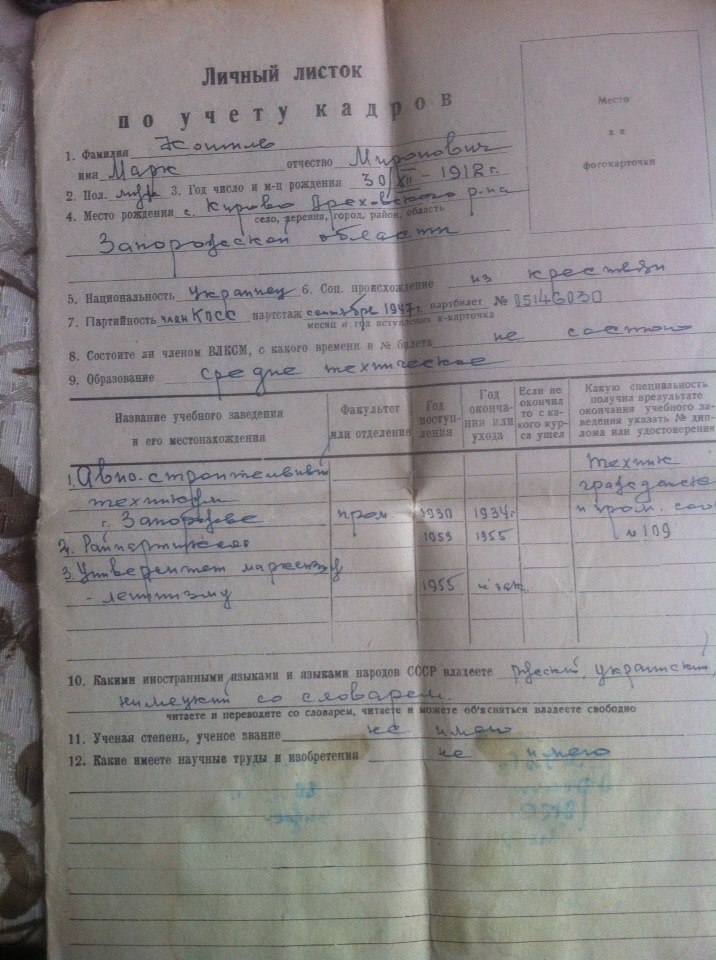 Личный листок
по учету кадров
Место
для
фотокарточки
1. Фамилия
имя Марк отчество Миронович
2. Пол. 3. Год число и м-ц рождения 30/XII - 1912 г.
4. Место рождения с. Кирово Ореховского р-на
село, деревня, город, район, область
Запорожской области
5. Национальность украинец 6. Соц. происхождение из крестьян
7. Партийность член КПСС партстаж сентябре 1947 г. партбилет № 05146030
месяц и год вступления и-карточка
8. Состоите ли членом ВЛКСМ, с какого времени и № билета не состою
9. Образование средне техническое
Название учебного заведения и его местонахождения
Факультет или отделение
Год поступления
Год окончания или ухода
Если не окончил то с какого курса ушел
Какую специальность получил врезультате окончания учебного заведения указать № диплома или удостоверения
1. строительный техник
техникум гражданск
г. Запорожье пром. 1930 1934 г и пром. соо
2. 1953 1955 № 109
3. Университет марксизму
- ленинизму 1955
10. Какими иностранными языками и языками народов СССР владеете русский, украинский,
нимецкий со словарем
читаете и переводите со словарем, читаете и можете об'ясняться владеете свободно
11. Ученая степень, ученое звание не имею
12. Какие имеете научные труды и изобретения не имею